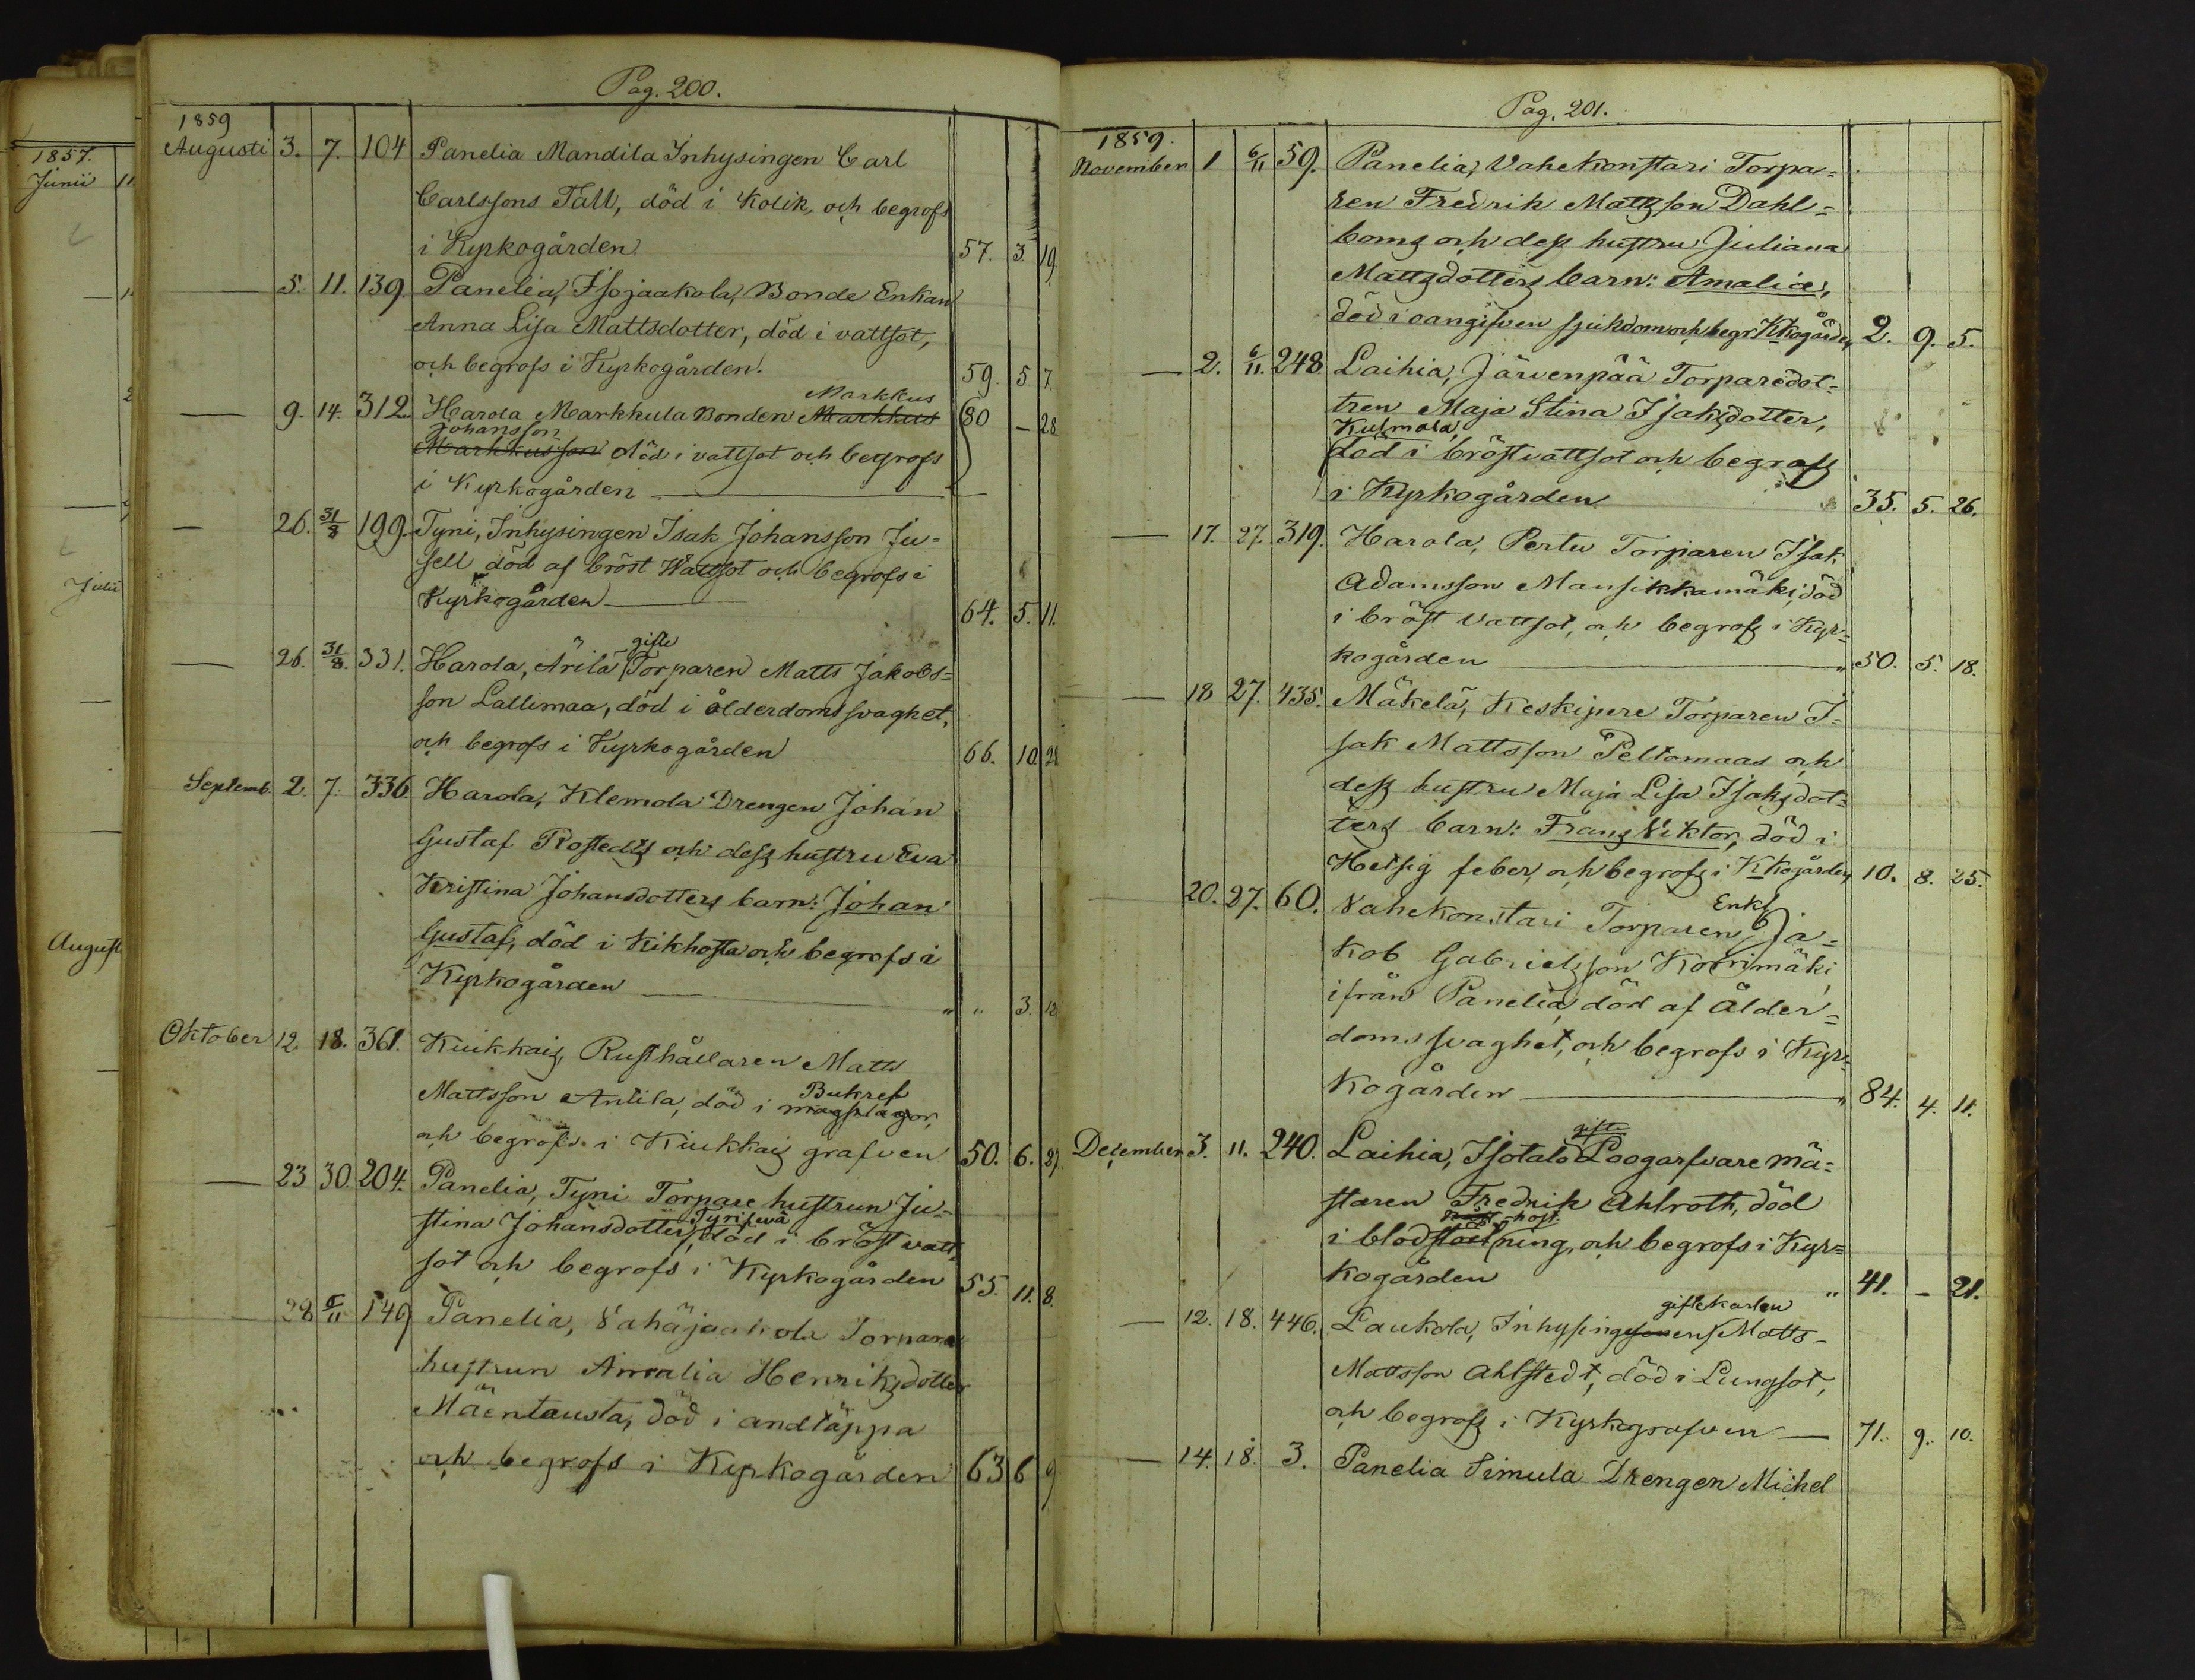 Pag. 200.
1859
Augusti 3. 7. 104 Panelia Mandila Inhysingen Carl
Carlssons Tall, död i Kolik, och begrofs
i Kyrkogården 57. 3. 19
— 5. 11. 139 Panelia, Isojaakola, Bonde Enkan
Anna Lisa Mattsdotter, död i vattsot,
och begrofs i Kyrkogården. 59. 5 7.
Markkus
— 9. 14. 312. Harola Markkula Bonden Markkus 80 — 28
Johansson
Markkusson död i vattsot och begrofs
i Kyrkogården —
— 26. 31/8 199. Tyni, Inhysingen Isak Johansson Ju=
sell död af bröst Wattsot och begrofs i
Kyrkogården — 64. 5. 11.
gifte
— 26. 31/8. 331. Harola, Ärilä Torparen Matts Jakobs=
son Lallimaa, död i ålderdoms svaghet,
och begrofs i Kyrkogården 66. 10. 28
Septemb. 2. 7. 336. Harola, Klemola Drengen Johan
Gustaf Rostedts och dess hustru Eva
Kristina Johansdotters barn: Johan
Gustaf, död i Kikhosta och begrofs i
Kyrkogården — " " 3. 12
Oktober 12. 18. 361. Kiukkais, Rusthållaren Matts
Bukref
Mattsson Antila, död i magplågor,
och begrofs i Kiukkais grafven 50. 6. 27
— 23 30. 204. Panelia, Tyni Torpare hustrun Ju=
stina Johansdotter, död i bröst vatt
sot och begrofs i Kyrkogården 55. 11. 8.
— 28 6/11 149 Panelia, Vähäjaakola Torpare
hustrun Amalia Henriksdotter
Mäentausta, död i andtäppa
och begrofs i Kyrkogården 63 6 9
1857.
Junii 11
Julii
August
Pag. 201.
1859.
November 1 6/11 59. Panelia, Vahekonstari Torpa=
ren Fredrik Mattsson Dahl=
boms och dess hustru Juliana
Mattsdotters barn: Amalia,
död i oangifven sjukdom och begr. K.kogården 2. 9. 5.
— 2. 6/11. 248. Laihia, Järvenpää Torparedot=
tren Maja Stina Isaksdotter,
Kulmala,
död i bröstvattsot och begrafs
i Kyrkogården 35. 5. 26.
— 17. 27. 319. Harola, Pertu Torparen Isak
Adamsson Mansikkamäki, död
i bröst vattsot, och begrofs i Kyr=
kogården — " 50. 5. 18.
— 18 27. 435. Mäkelä, Keskipere Torparen I=
sak Mattsson Peltomaas och
dess hustru Maja Lisa Isaksdot=
ters barn: Frans Viktor, död i
Hetsig feber, och begrofs i K.kogården 10. 8. 25.
Enkl
20. 27. 60. Vahekonstari Torparen Ja=
kob Gabrielsson Korrimäki
ifrån Panelia, död af Ålder=
doms svaghet, och begrofs i Kyr=
kogården — " 84. 4. 11.
gift
December 3. 11. 240. Laihia, Isotalo Loogarfvare mä=
staren Fredrik Ahlroth, död
host
i blodstörtning, och begrofs i Kyr=
kogården " 41. — 21.
giftekarlen
— 12. 18. 446. Laukola, Inhysingsonens Matts
Mattsson Ahlstedt, död i Lungsot,
och begrofs i Kyrkografven — 71. 9. 10.
— 14. 18. 3. Panelia Simula Drengen Michel